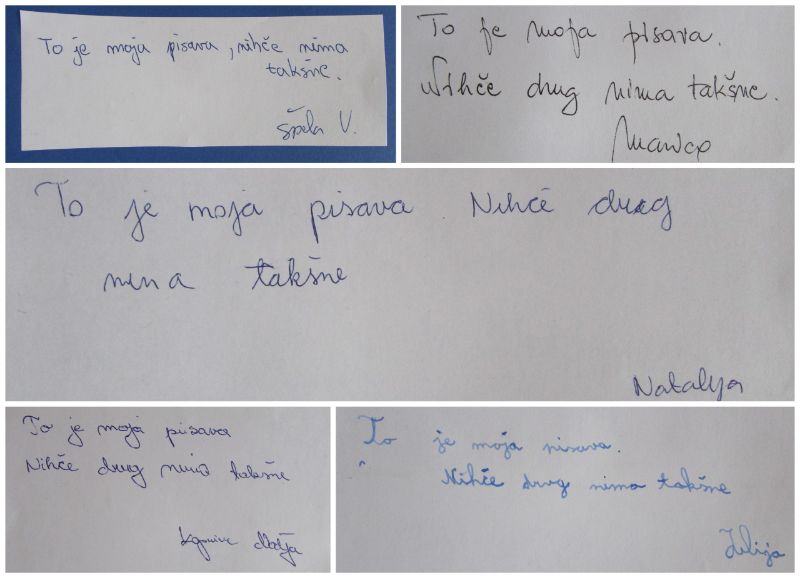 To je moja pisava, nihče nima
takšne.
Špela V.
To je moja pisava.
Nihče drug nima takšne.
To je moja pisava Nihče drug
nina takšne
Natalya
To je moja pisava
Nihče drug nima takšne
To je moja pisava.
Nihče drug nima takšne
Julija